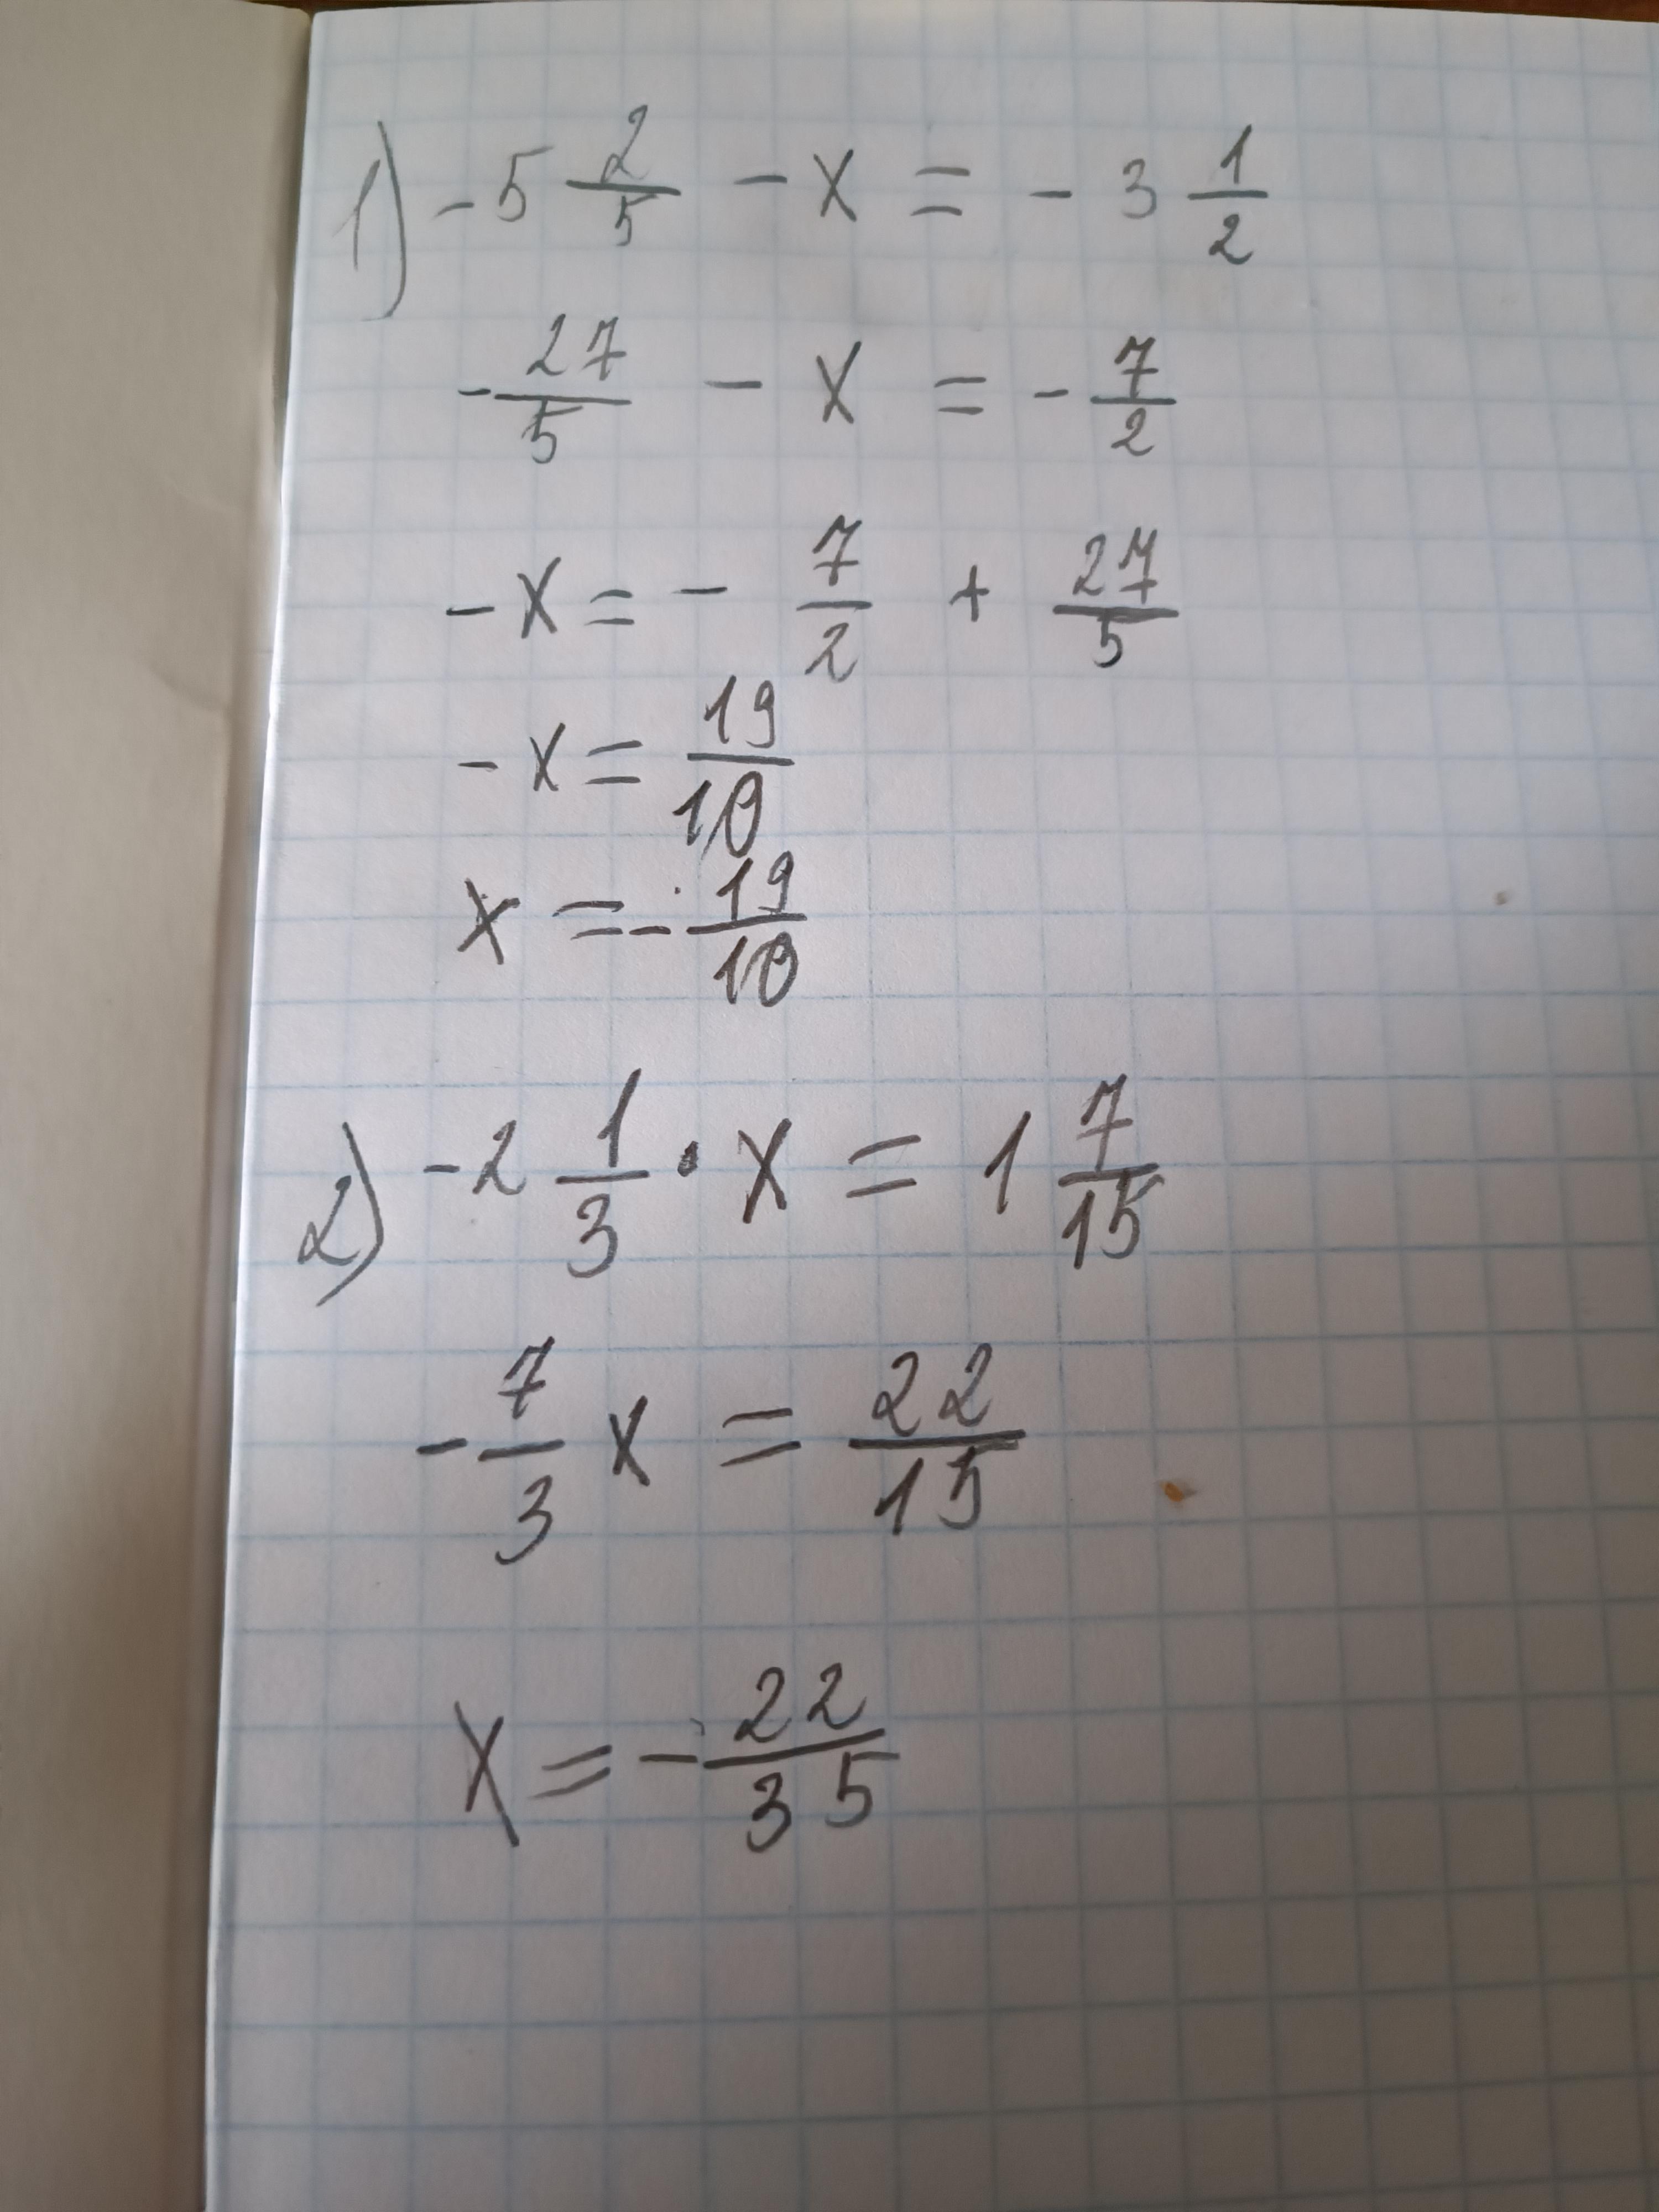 1) -5 2/5 - x = - 3 1/2
- 27/5 - x = - 7/2
- x = - 7/2 + 27/5
- x = 19/10
x = - 19/10
2) -2 1/3 · x = 1 7/15
- 7/3 x = 22/15
x = - 22/35